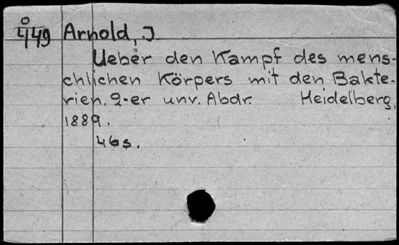 Ö
449 Arnold, J.
Ueber den Kampf des mens-
chlichen Körpers mit den Bakte-
rien. 2-er unv. Abdr. Heidelberg,
1889.
46s.